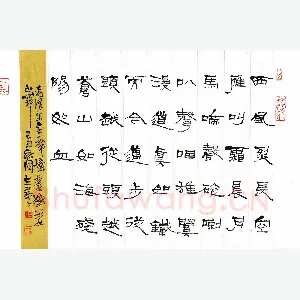 西風烈長空
雁叫霜晨月
馬蹄聲碎喇
叭聲咽雄關
漫道真如鐵
而今邁步從
頭越從頭越
蒼山如海殘
陽如血
shufawang.CN